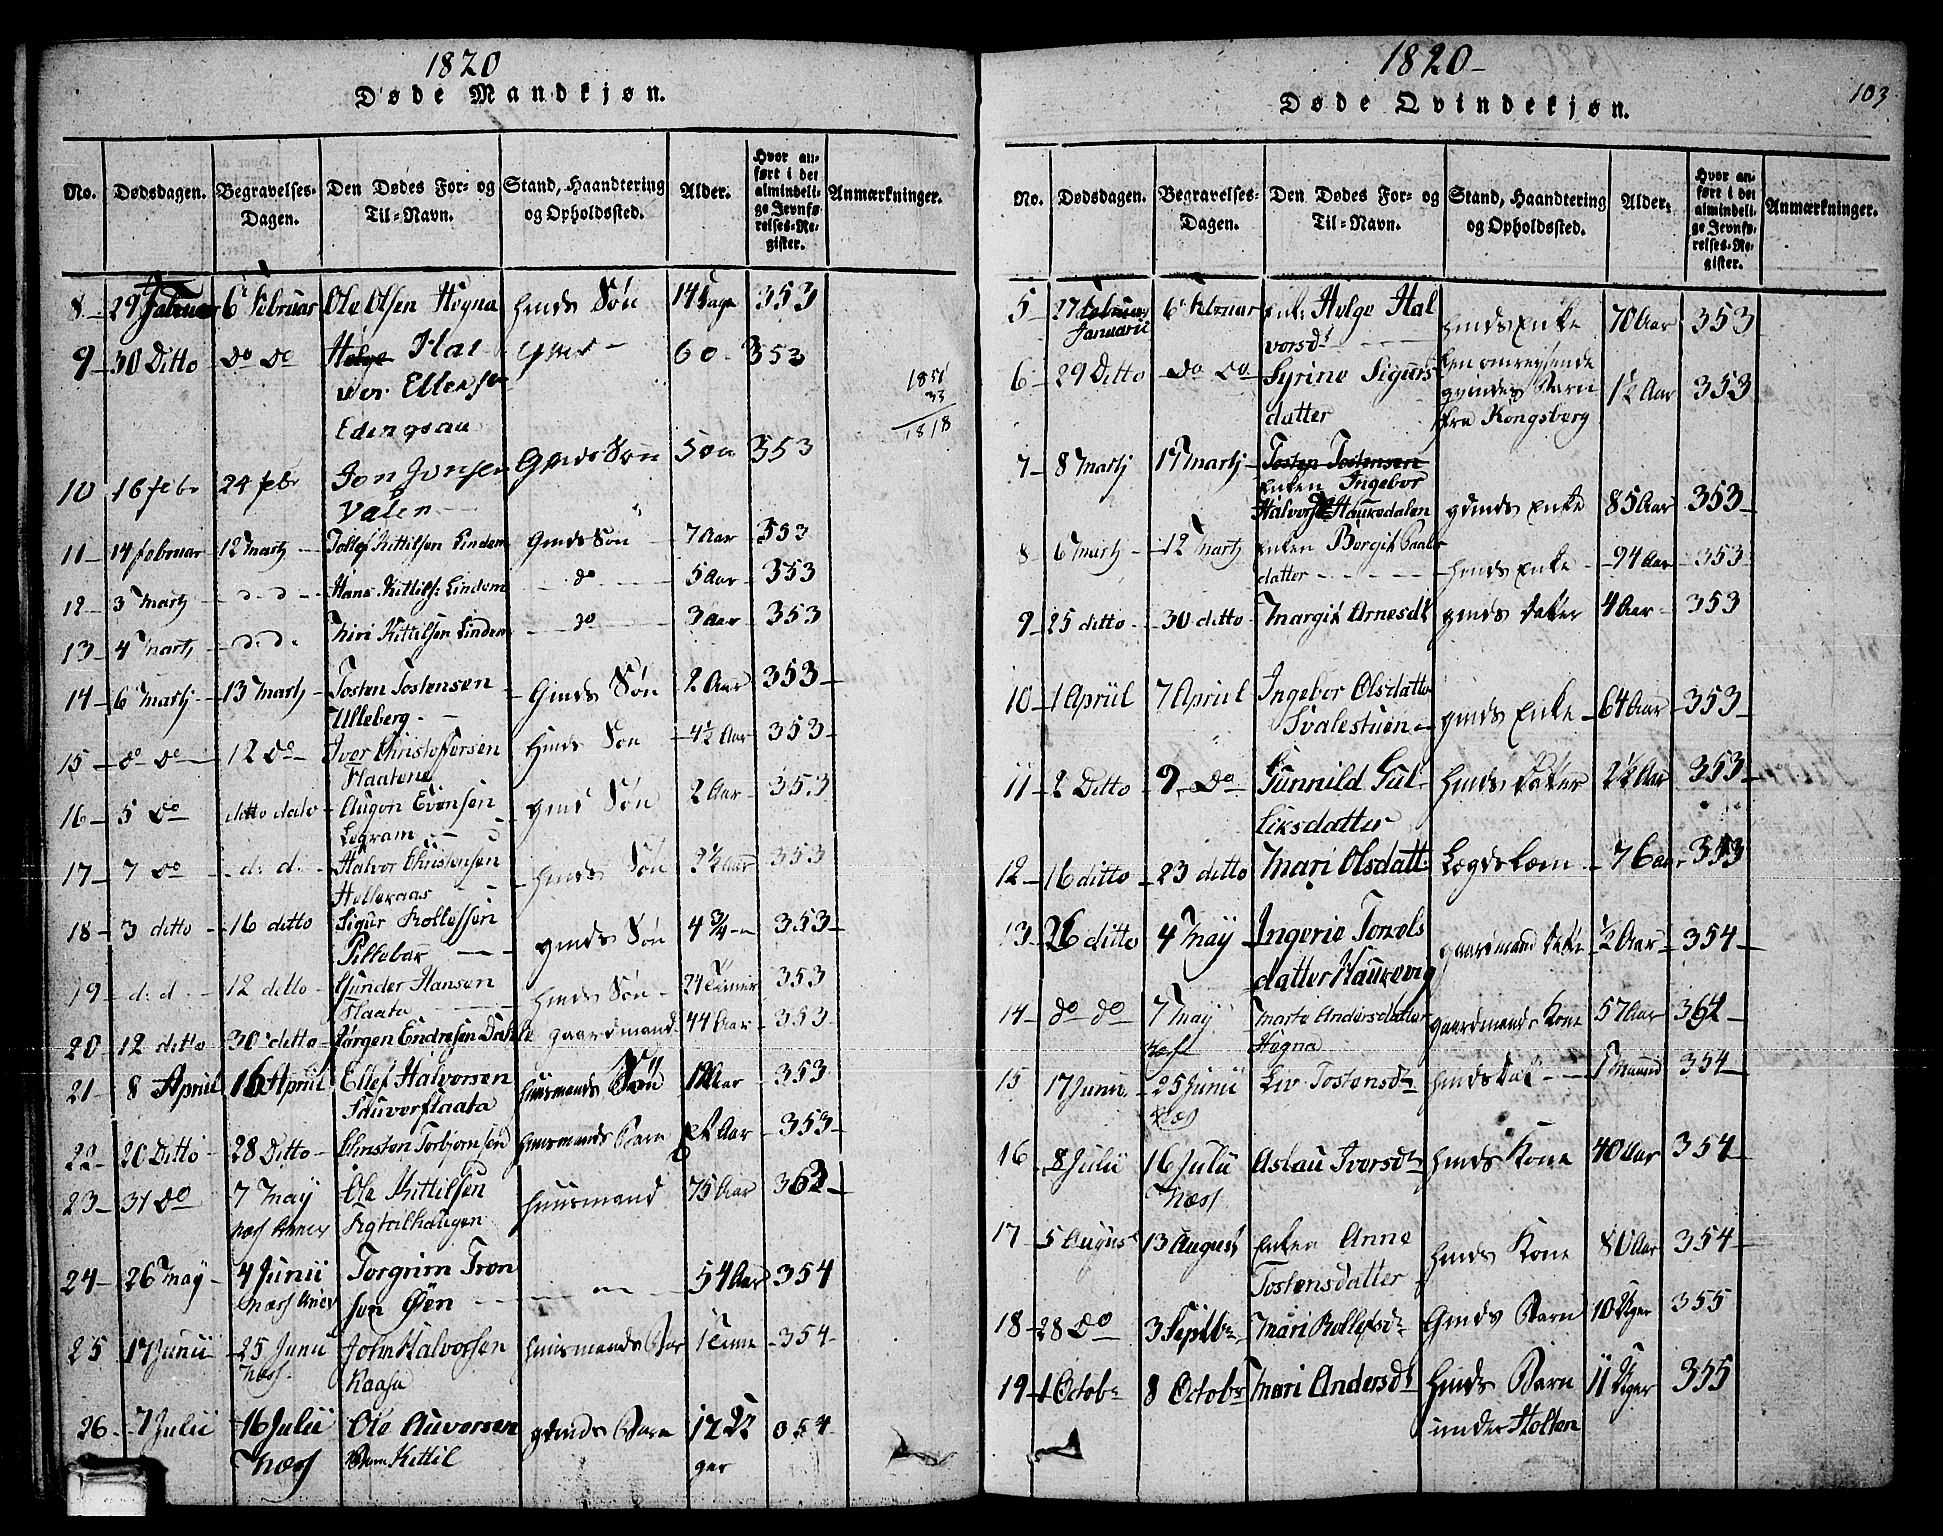 1820
Døde Mandkjøn.
No. Dødsdagen. Begravelses-Dagen. Den Dødes For- og Til-Navn. Stand, Haandtering og Opholdssted. Alder. Hvor anført i det almindelige Jevnførelses-Register. Anmærkninger.
8 29 Januar 6 Februar Ole Olsen Hogna Hmds Søn 14 Dage 353
9 30 Ditto do do Helge Hal 60 353
vor Ellensen
1851
33
1818
10 16 febr 24 febr Jon Jonsen Gmds Søn 353
Valen
11 14 februar 12 Martj Tollef Kittilsen Lindem Gmds Søn 7 Aar 353
12 3 Martj d. d. Hans Kittils: Lindem do 5 Aar 353
13 4 Martj d. d. Kittilsen Lindem do 3 Aar 353
14 6 Martj 13 Martj Tosten Tostensen Gmds Søn 2 Aar 353
Ulleberg
15 do do 12 do Iver Christoffersen Hmds Søn 4½ Aar 353
Flaatene
16 5 do ditto dato Augon Evensen gmds Søn 2 Aar 353
Legram
17 7 do d. d. Halvor Christensen Hmds Søn Aar 353
Hellekaas
18 3 ditto 16 ditto Sigur Rollefsen gmds Søn 4 ¾ 353
19 d. d. 12 ditto Gunder Hansen Hmds Søn 24 Timer 353
Flaata
20 12 ditto 30 ditto Jørgen Endresen Dahle gaardmand 44 Aar 353
21 8 April 16 April Ellef Halvorsen Huusmands Søn Aar 353
22 20 Ditto 28 Ditto Christen Torbjørnsen Huusmands Barn Aar 353
23 31 do 7 May Ole Kittilsen Huusmand 75 Aar 362
24 26 May 4 Junii Torgrim Tron 54 Aar 354
son Øen
25 17 Junii 25 Junii John Halvorsen Huusmands Bar 1 Time 354
Næss. Kaasa
26 7 Julii 16 Julii Ole Auversen gmds Barn 354
Næss Kittil ger
1820
103
Døde Qvindekjøn.
No. Dødsdagen. Begravelses-Dagen. Den Dødes For- og Til-Navn. Stand, Haandtering og Opholdssted. Alder. Hvor anført i det almindelige Jevnførelses-Register. Anmærkninger.
5 27 Januarii 6 Februar Enke Helge Hal Hmds Enke 70 Aar 353
vorsdt
6 29 Ditto do do Syrine Sigurs En omreysende 1½ Aar 353
datter qvindes Barn
fra Kongsberg
7 8 Martj 17 Martj Tosten Tostensen
Enken Ingebor
Halvorsdt Haukedalen gmds Enke 85 Aar 353
8 6 Martj 12 Martj Enken Borgit Paals
datter Hmds Enke 94 Aar 353
9 25 ditto 30 ditto Margit Arnesdt gmds Datter 4 Aar 353
10 1 Apriil 7 Apriil Ingebor Olsdatter gmds Enke 64 Aar 353
Svalestuen
11 2 Ditto 9 do Gunnild Gul Hmds Datter 2½ Aar 353
liksdatter
12 16 ditto 23 ditto Mari Olsdatt: Lægdslem 76 aar 353
13 26 ditto 4 May Ingerie Torvols gaardmand datter ½ Aar 354
datter Haukevig
14 do do 7 May Marte Andersdatter gaardmands Kone 57 Aar 362
Næss Hogna
15 17 Junii 25 Junii Liv Tostensdt Hmds Dat 1 Maaned 354
Næs
16 8 Julii 16 Julii Aslau Iversdt Hmds Kone 40 Aar 354
Næss
17 5 August 13 August Enken Anne Hmds Kone 80 Aar 354
Tostensdatter
18 28 do 3 Septbr Mari Rollefsdt Gmds Barn 10 Uger 355
19 1 Octobr 8 Octobr Mari Andersdt Hmds Barn 11 Uger 355
under Holten